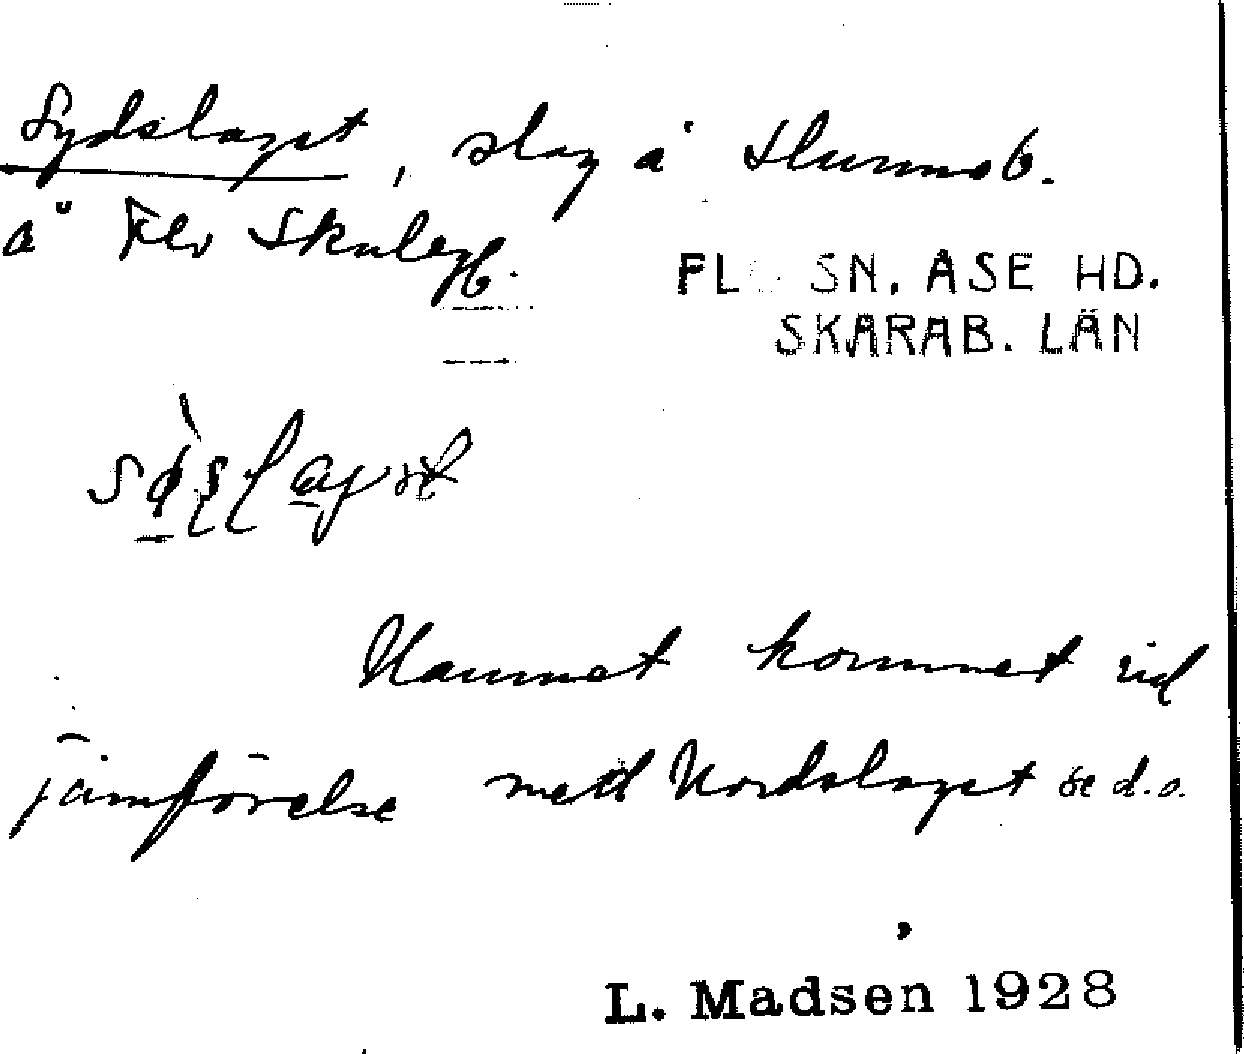 Sydslaget, slag å Hunneb.
å Flo Skulegb.
FLO SN. ÅSE HD.
SKARAB. LÄN
Namnet kommet vid
jämförelse med Nordslaget se d.o.
L. Madsen 1928